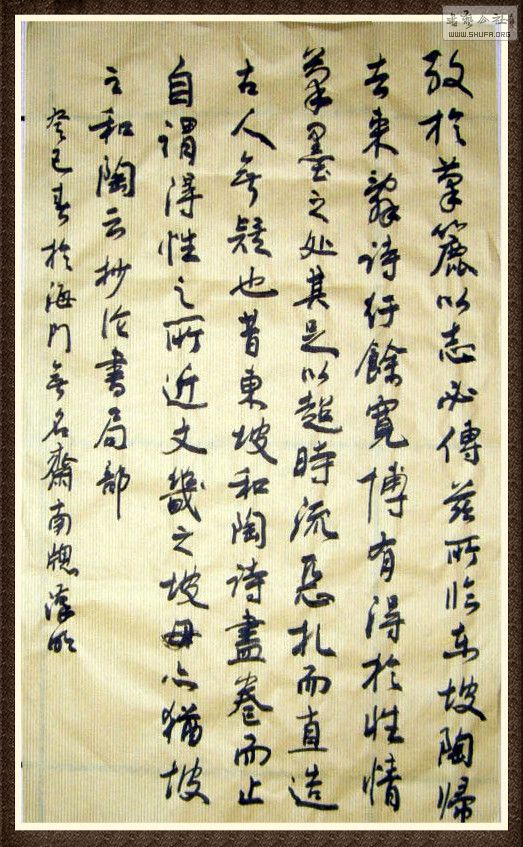 放於筆簏以志必傳茲所临东坡陶歸
去来辭诗行餘寬博有得於性情
筆墨之处其足以超時流惡札而直造
古人無疑也昔東坡和陶诗盡卷而止
自謂得性之所近文幾之坡毋亦猶坡
之和陶云抄论書局部
癸巳春於海门無名齋南牕
书艺公社
WWW.SHUFA.ORG